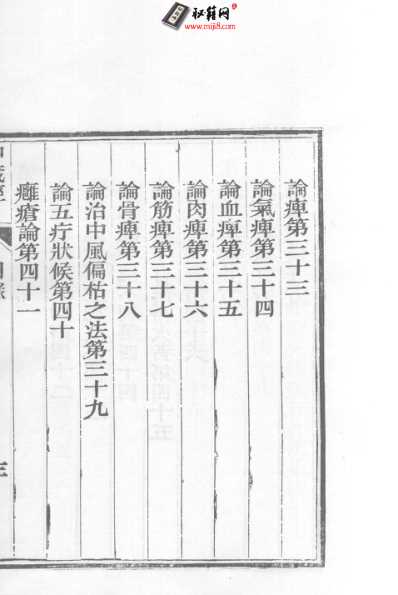 秘籍网
www.miji8.com
論痺第三十三
論氣痺第三十四
論血痺第三十五
論肉痺第三十六
論筋痺第三十七
論骨痺第三十八
論治中風偏枯之法第三十九
論五疔狀候第四十
癰瘡論第四十一
三